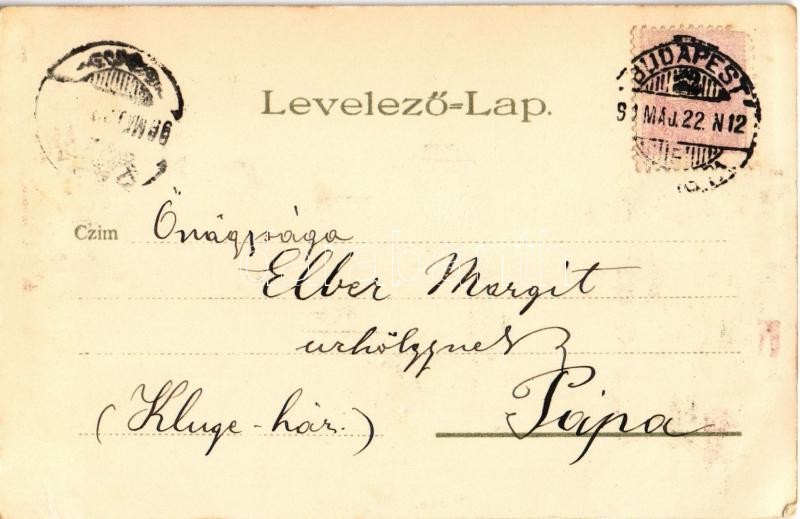 Levelező=Lap.
BUDAPEST
MÁJ. 22. N12
Czim Őnágysága
Elber Margit
urhölgynek
(Kluge-ház.) Pápa